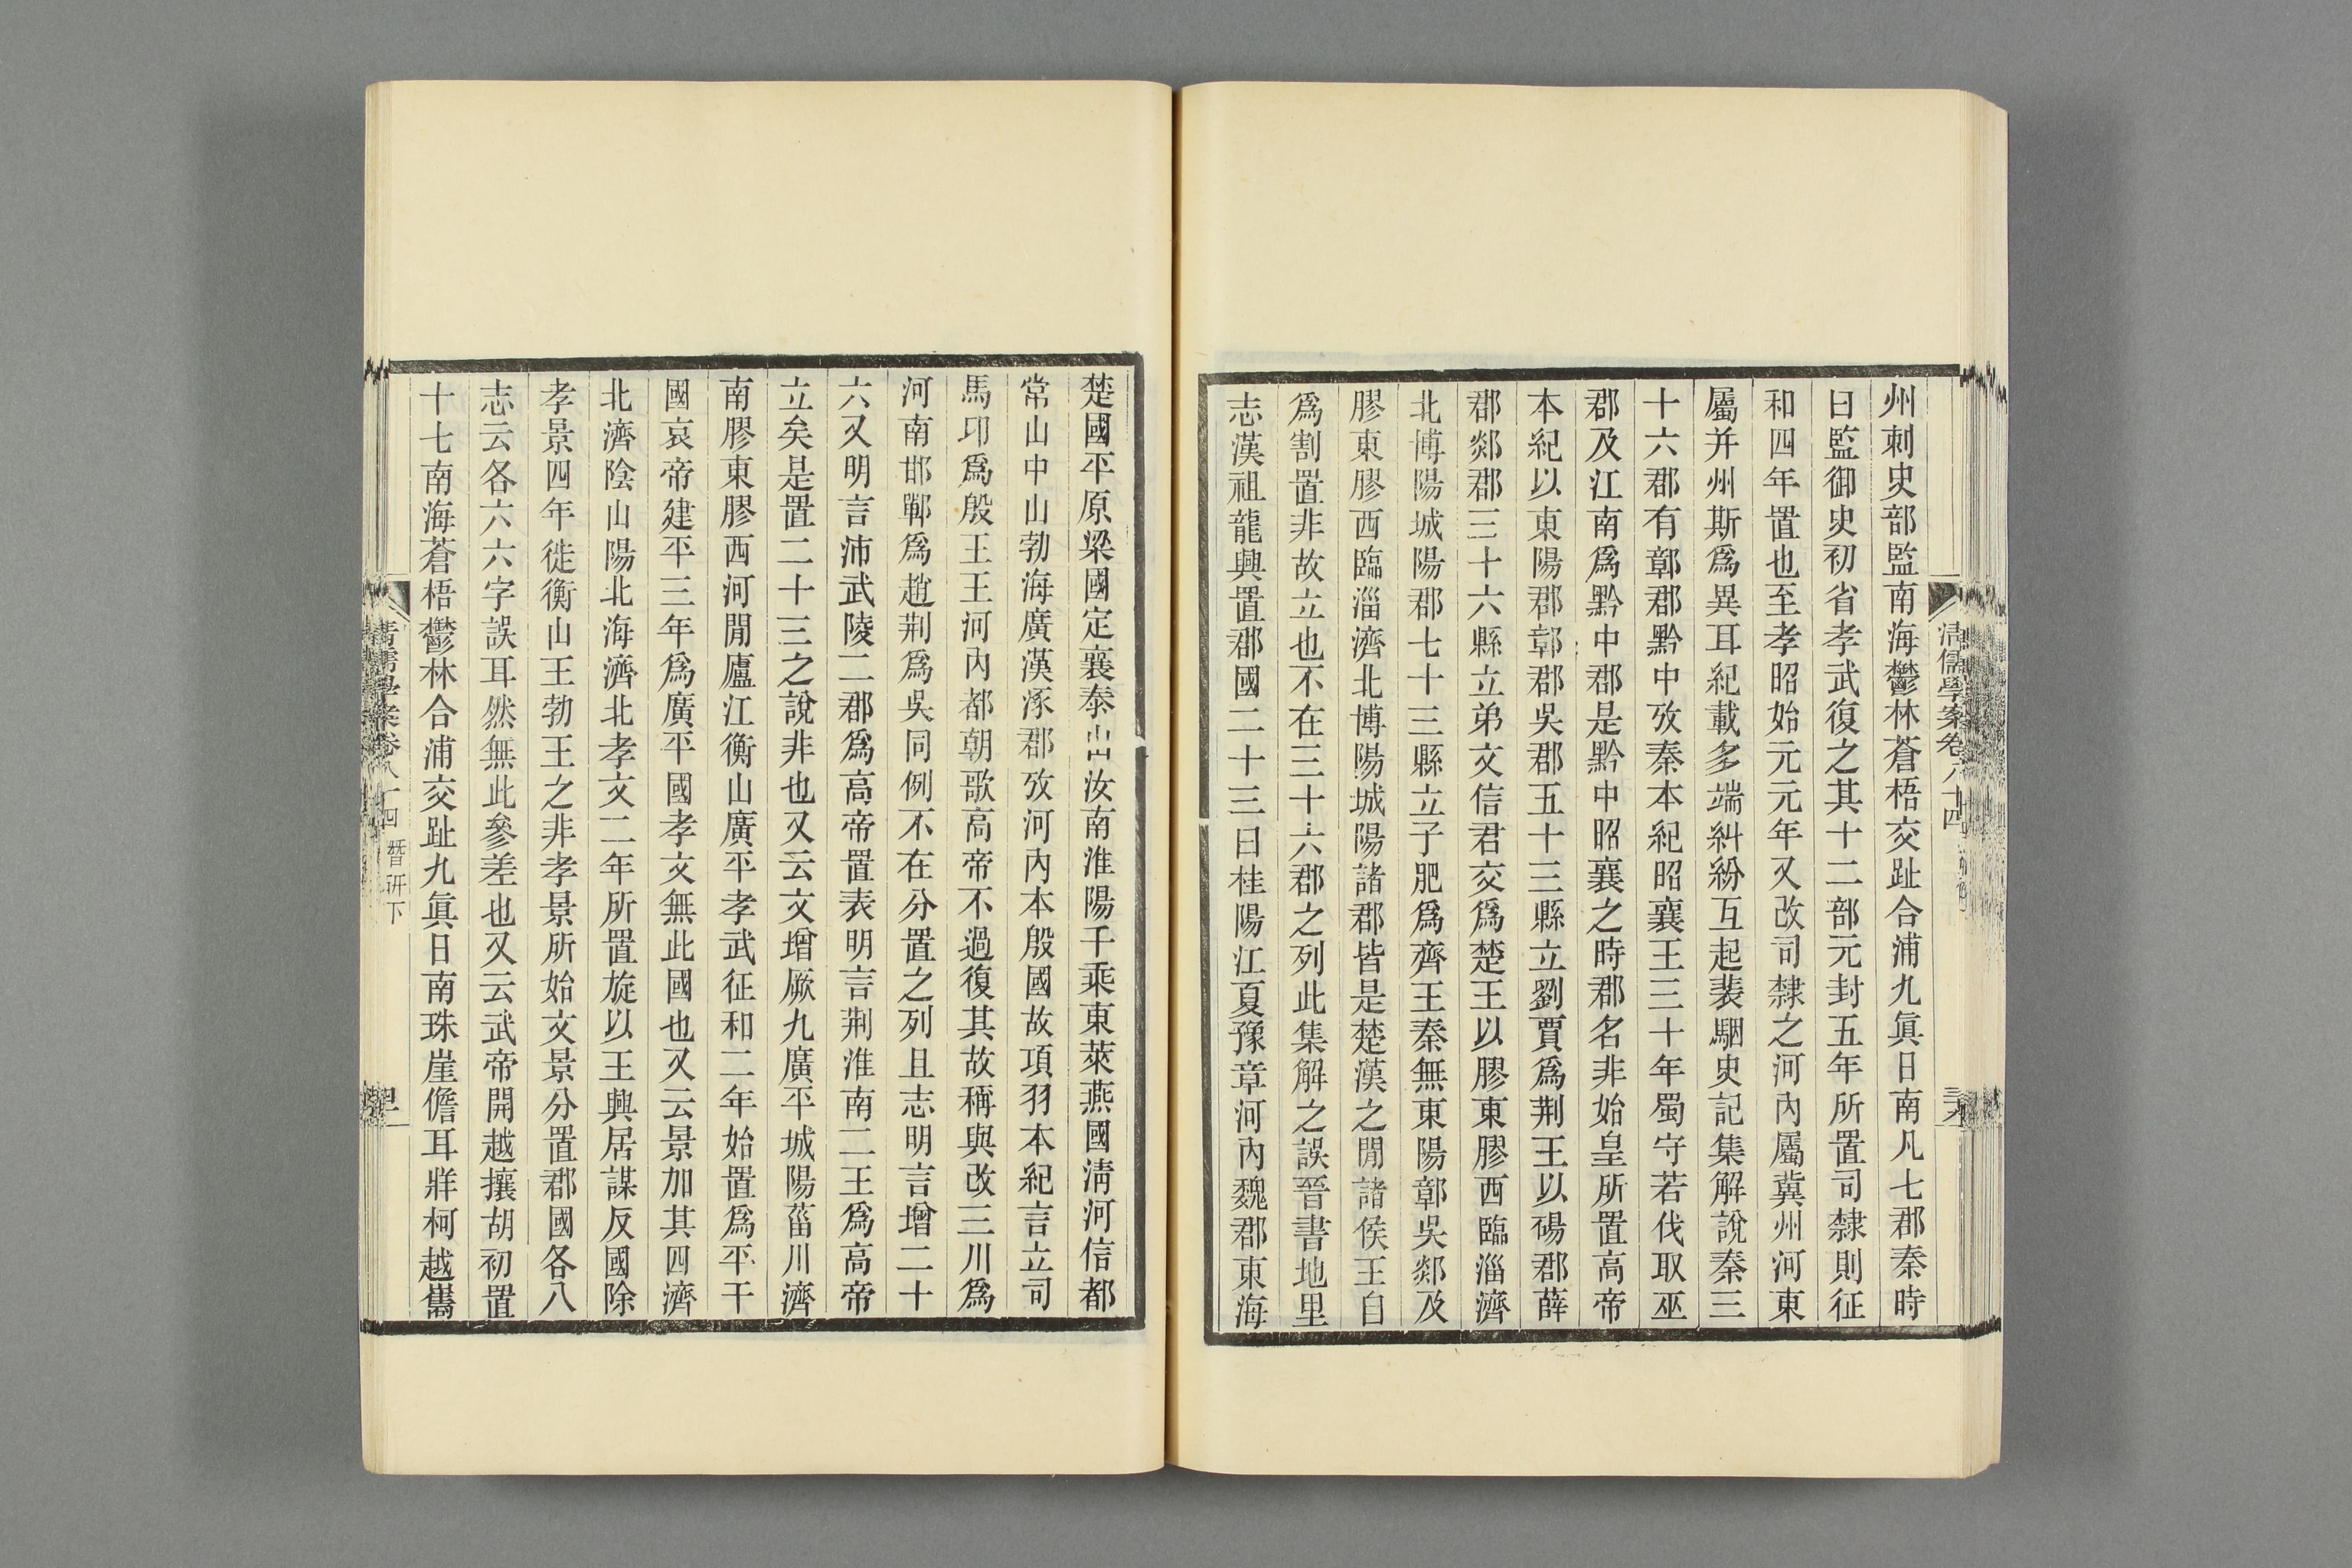 州刺史部監南海鬱林蒼梧交趾合浦九眞日南凡七郡秦時
曰監御史初省孝武復之其十二部元封五年所置司隸則征
和四年置也至孝昭始元元年又改司隸之河內屬冀州河東
屬并州斯爲異耳紀載多端糾紛互起裴駰史記集解說秦三
十六郡有鄣郡黔中攷秦本紀昭襄王三十年蜀守若伐取巫
郡及江南爲黔中郡是黔中昭襄之時郡名非始皇所置高帝
本紀以東陽郡鄣郡吳郡五十三縣立劉賈爲荆王以碭郡薛
郡郯郡三十六縣立弟文信君交爲楚王以膠東膠西臨淄濟
北博陽城陽郡七十三縣立子肥爲齊王秦無東陽鄣吳郯及
膠東膠西臨淄濟北博陽城陽諸郡皆是楚漢之閒諸侯王自
爲割置非故立也不在三十六郡之列此集解之誤晉書地里
志漢祖龍興置郡國二十三曰桂陽江夏豫章河內魏郡東海
清儒學案卷八十四
楚國平原梁國定襄泰山汝南淮陽千乘東萊燕國清河信都
常山中山勃海廣漢涿郡攷河內本殷國故項羽本紀言立司
馬卬爲殷王王河內都朝歌高帝不過復其故稱與改三川爲
河南邯鄲爲趙荆爲吳同例不在分置之列且志明言增二十
六又明言沛武陵二郡爲高帝置表明言荆淮南二王爲高帝
立矣是置二十三之說非也又云文增厥九廣平城陽菑川濟
南膠東膠西河閒廬江衡山廣平孝武征和二年始置爲平干
國哀帝建平三年爲廣平國孝文無此國也又云景加其四濟
北濟陰山陽北海濟北孝文二年所置旋以王興居謀反國除
孝景四年徙衡山王勃王之非孝景所始文景分置郡國各八
志云各六六字誤耳然無此參差也又云武帝開越攘胡初置
十七南海蒼梧鬱林合浦交趾九眞日南珠崖儋耳牂柯越巂
清儒學案卷八十四 晉研下